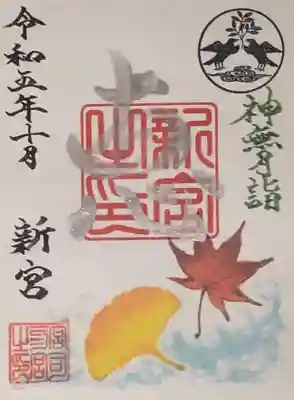 神無月詣
新宮
之印
令和五年十月
新宮